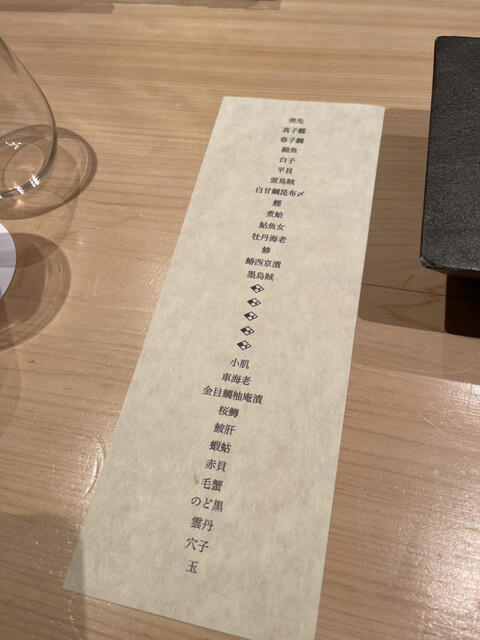 真子鰈
春子鯛
白子
平貝
蛍烏賊
白甘鯛昆布〆
鰹
煮蛤
鮎魚女
牡丹海老
鯵
鰆西京漬
墨烏賊
小肌
車海老
金目鯛柚庵漬
桜鱒
鮟肝
蝦蛄
赤貝
毛蟹
のど黒
雲丹
穴子
玉